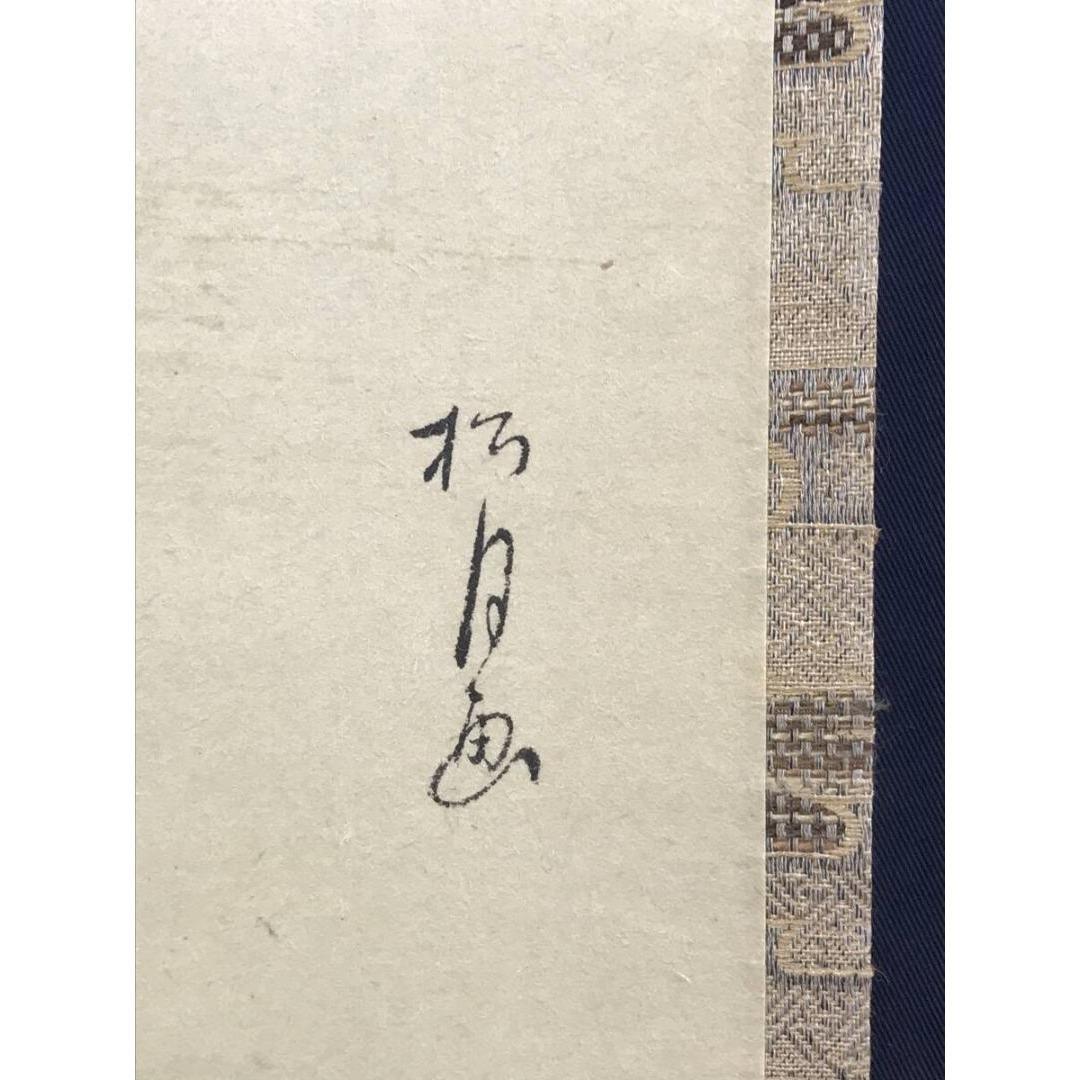 松月画